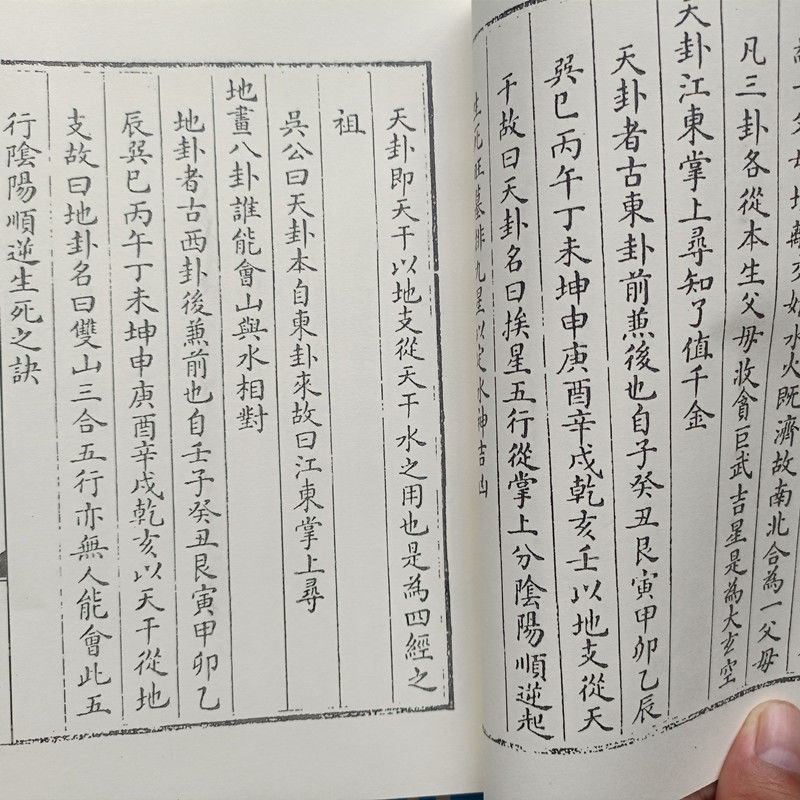 一父母地轉交如水火既濟故南北合為一父母
凡三卦各從本生父母收貪巨武吉星是為大玄空
天卦江東掌上尋知了值千金
天卦者古東卦前兼後也自子癸丑艮寅甲卯乙辰
巽巳丙午丁未坤申庚酉辛戌乾亥壬以地支從天
干故曰天卦名曰挨星五行從掌上分陰陽順逆起
生死旺墓排九星以定水神吉凶
天卦即天干以地支從天干水之用也是為四經之
祖
吳公曰天卦本自東卦來故曰江東掌上尋
地畫八卦誰能會山與水相對
地卦者古西卦後兼前也自壬子癸丑艮寅甲卯乙
辰巽巳丙午丁未坤申庚酉辛戌乾亥以天干從地
支故曰地卦名曰雙山三合五行亦無人能會此五
行陰陽順逆生死之訣